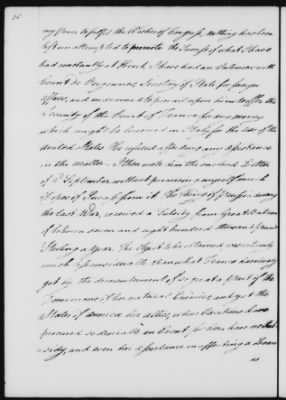 my power to fulfil the Wishes of Congress, nothing has been
left unattempted to promote the Success of what I have
had constantly at Heart. I have had an Interview with
Count de Vergennes, Secretary of State for foreign
affairs, and endeavored to prevail upon him to offer the
Security of the Court of France for any money
which might be borrowed in Italy for the use of the
United States. He refused affording any assistance
in the matter. I then wrote him the inclosed Letter
of September without promising myself much
Success of Result from it. The King of Prussia during
the last War, received a Subsidy from Great Britain
of between seven and eight hundred thousand Pounds
Sterling a year. The object to be obtained was certainly
much less considerable than what France has already
got by the dismemberment of so great a part of the
Dominions of her natural Enimies, and yet the
States of America her allies, whose Exertions have
procured so desirable an Event for her, have no Sub-
sidy, and even her assistance in effecting a Loan
no